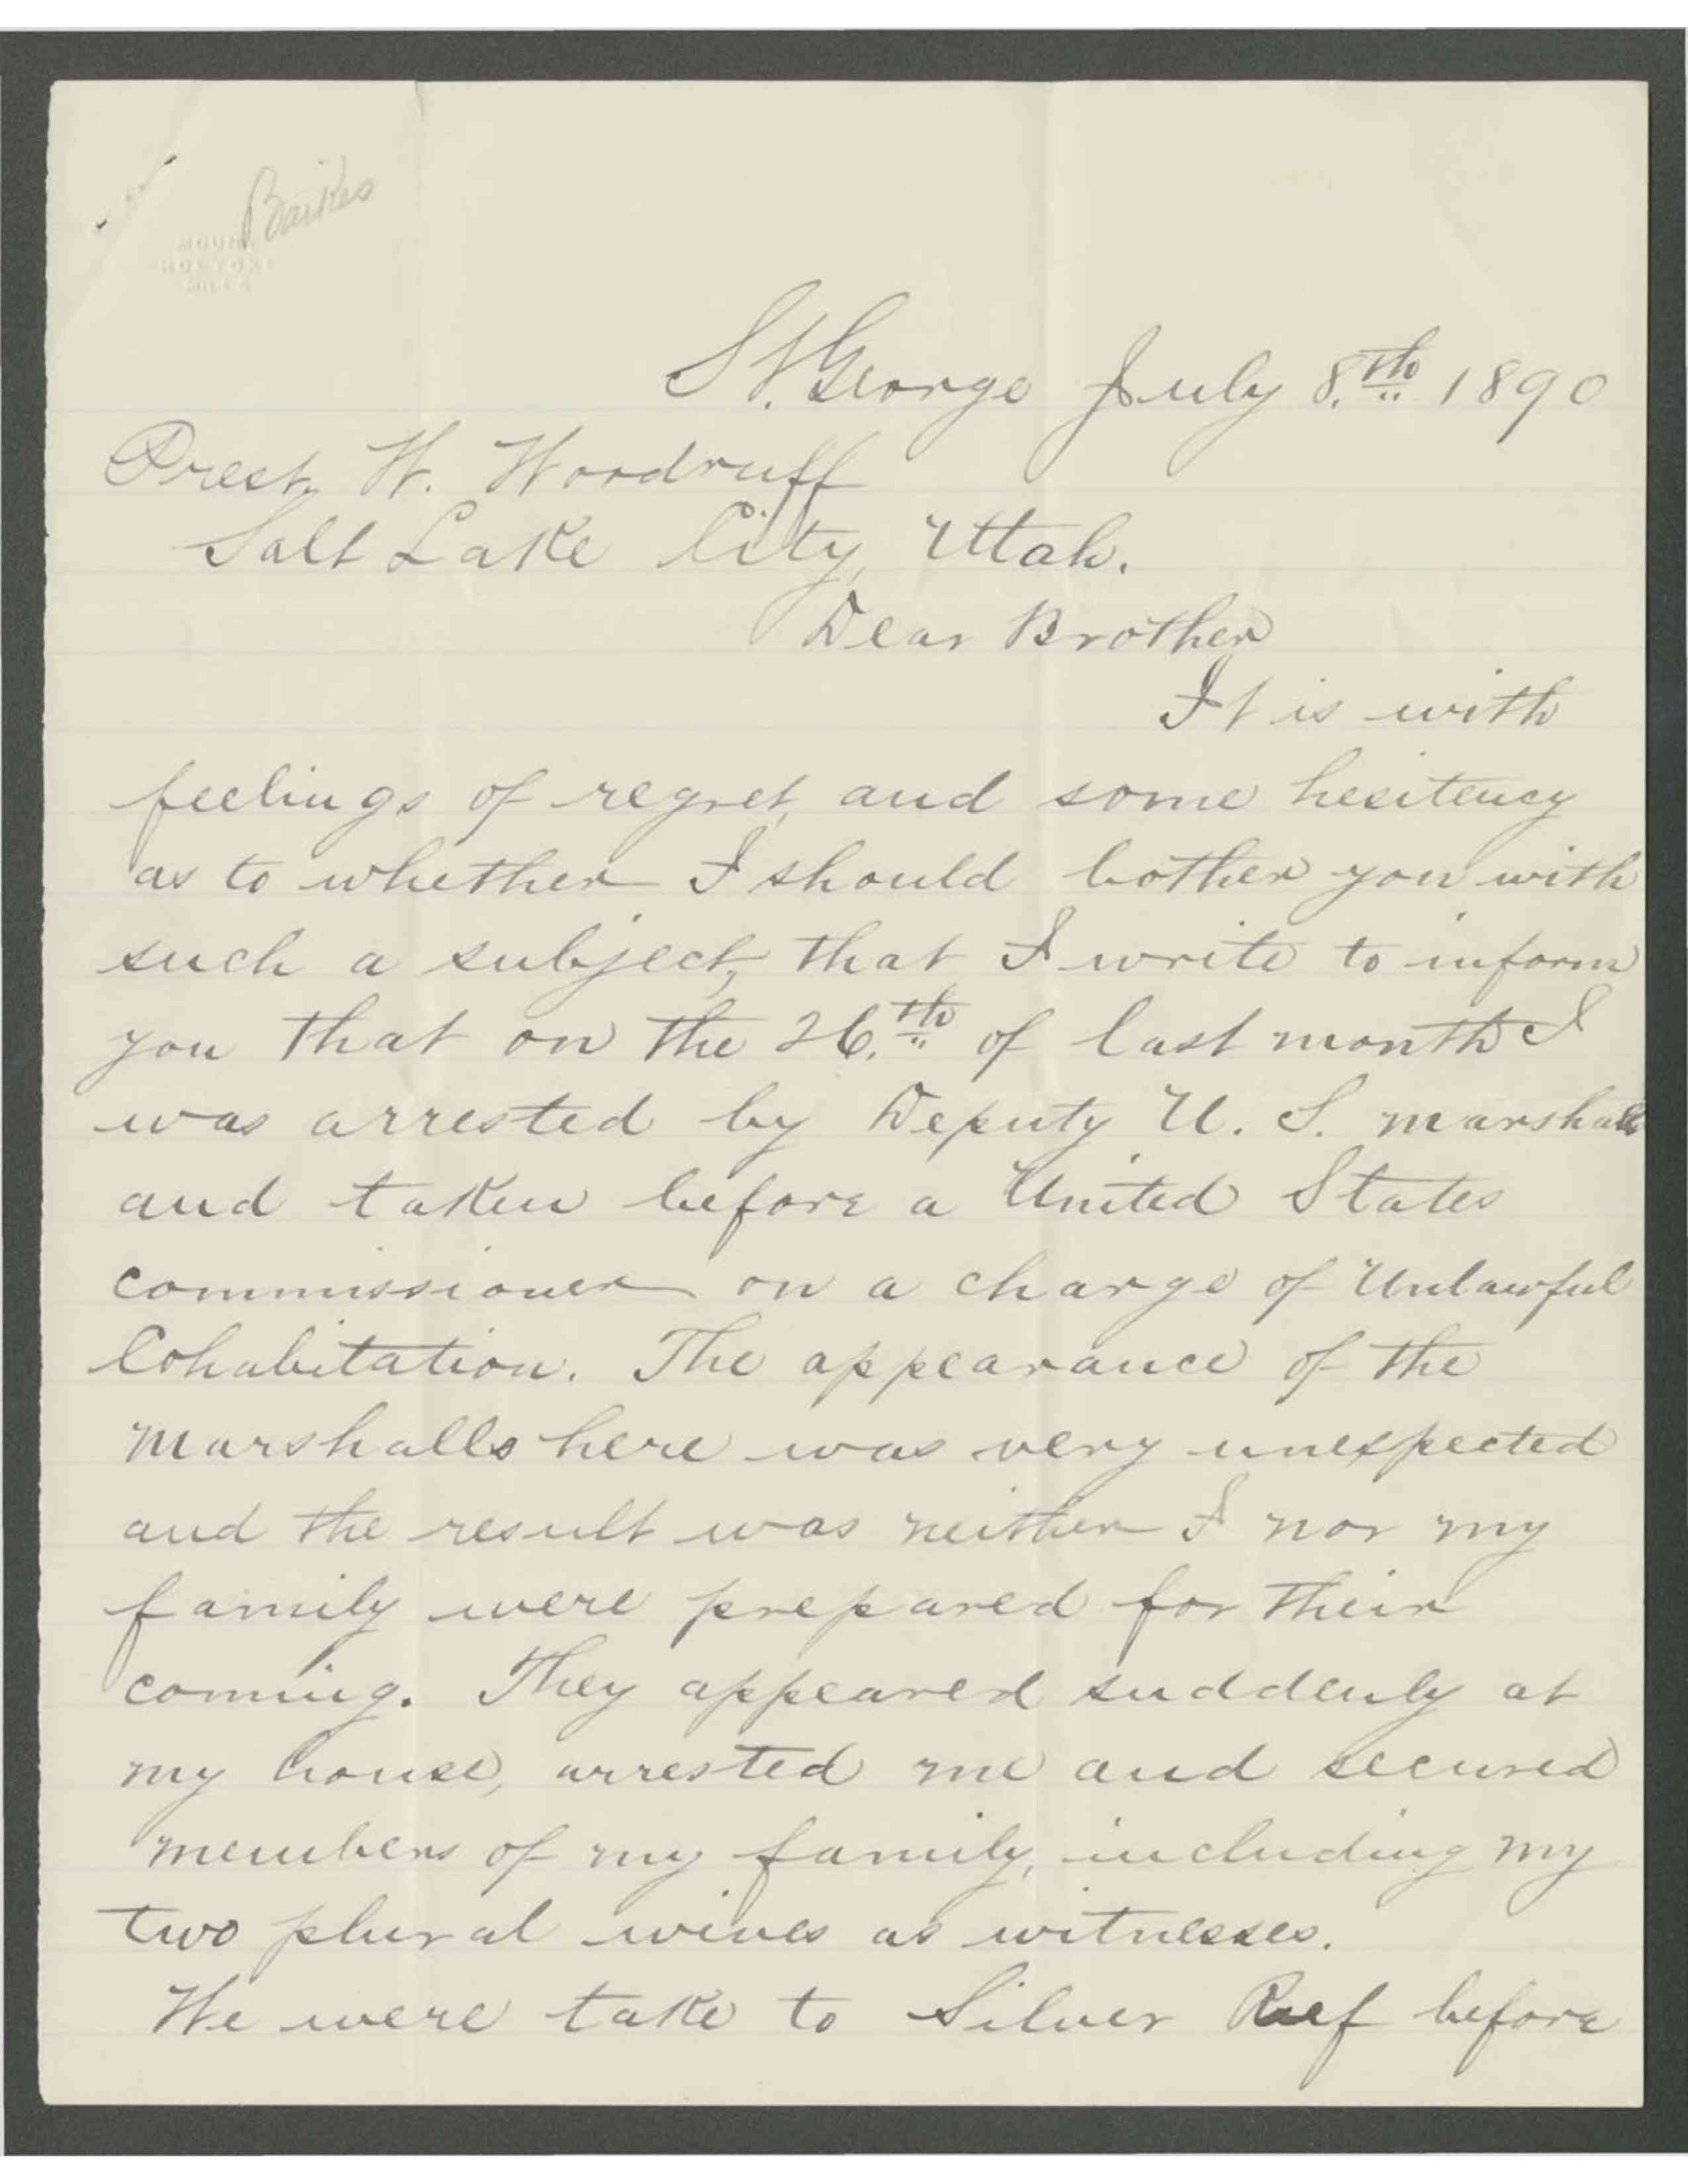 MOUNT
HOLYOKE
MILLS
St. George July 8.th 1890
Prest. W. Woodruff
Salt Lake City, Utah.
Dear Brother
It is with
feelings of regret, and some hesitency
as to whether I should bother you with
such a subject, that I write to inform
you that on the 26.th of last month I
was arrested by Deputy U. S. marshall
and taken before a United States
commissioner on a charge of Unlawful
Cohabitation. The appearance of the
Marshalls here was very unexpected
and the result was neither I nor my
family were prepared for their
coming. They appeared suddenly at
my house, arrested me and secured
members of my family, including my
two plural wives as witnesses.
We were take to Silver Reef before